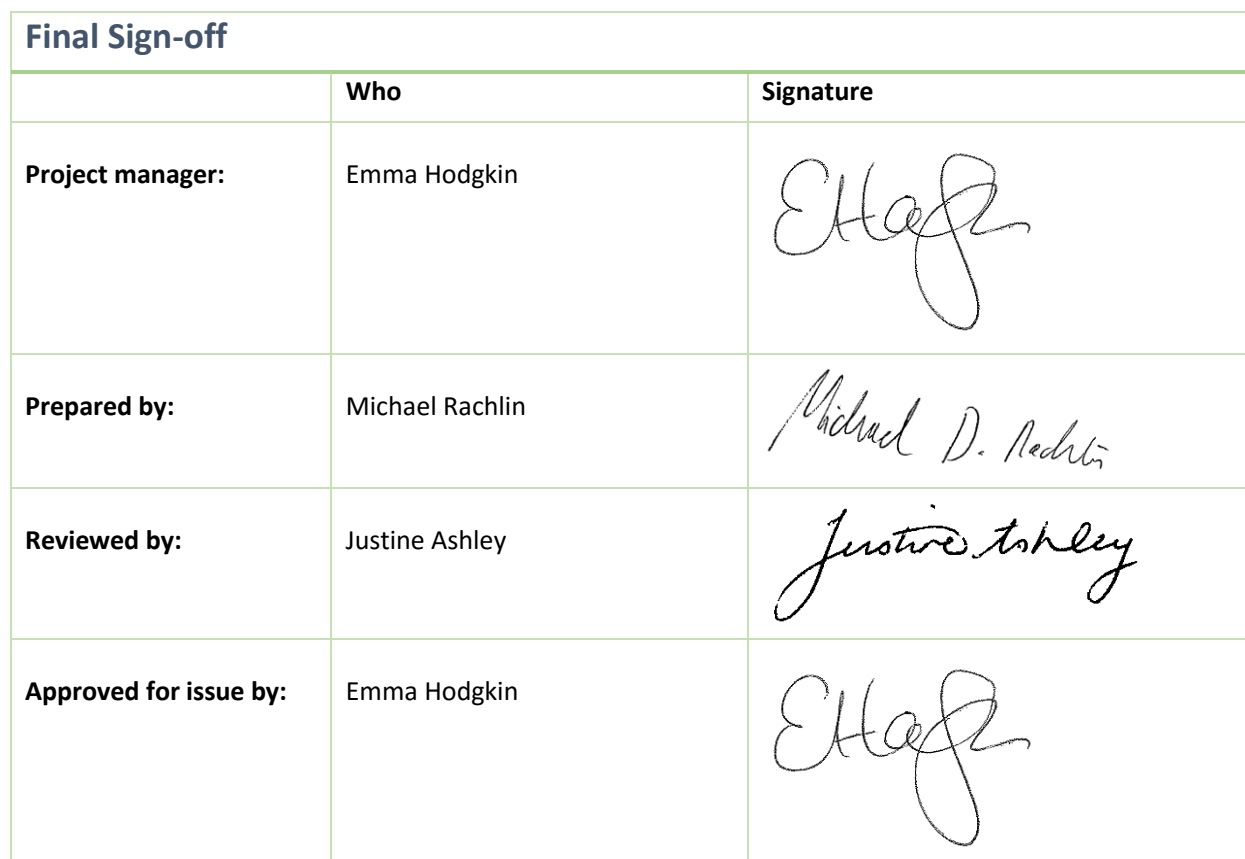 Final Sign-off
Who Signature
Project manager: Emma Hodgkin
Prepared by: Michael Rachlin Michael D. Rachlin
Reviewed by: Justine Ashley Justine Ashley
Approved for issue by: Emma Hodgkin